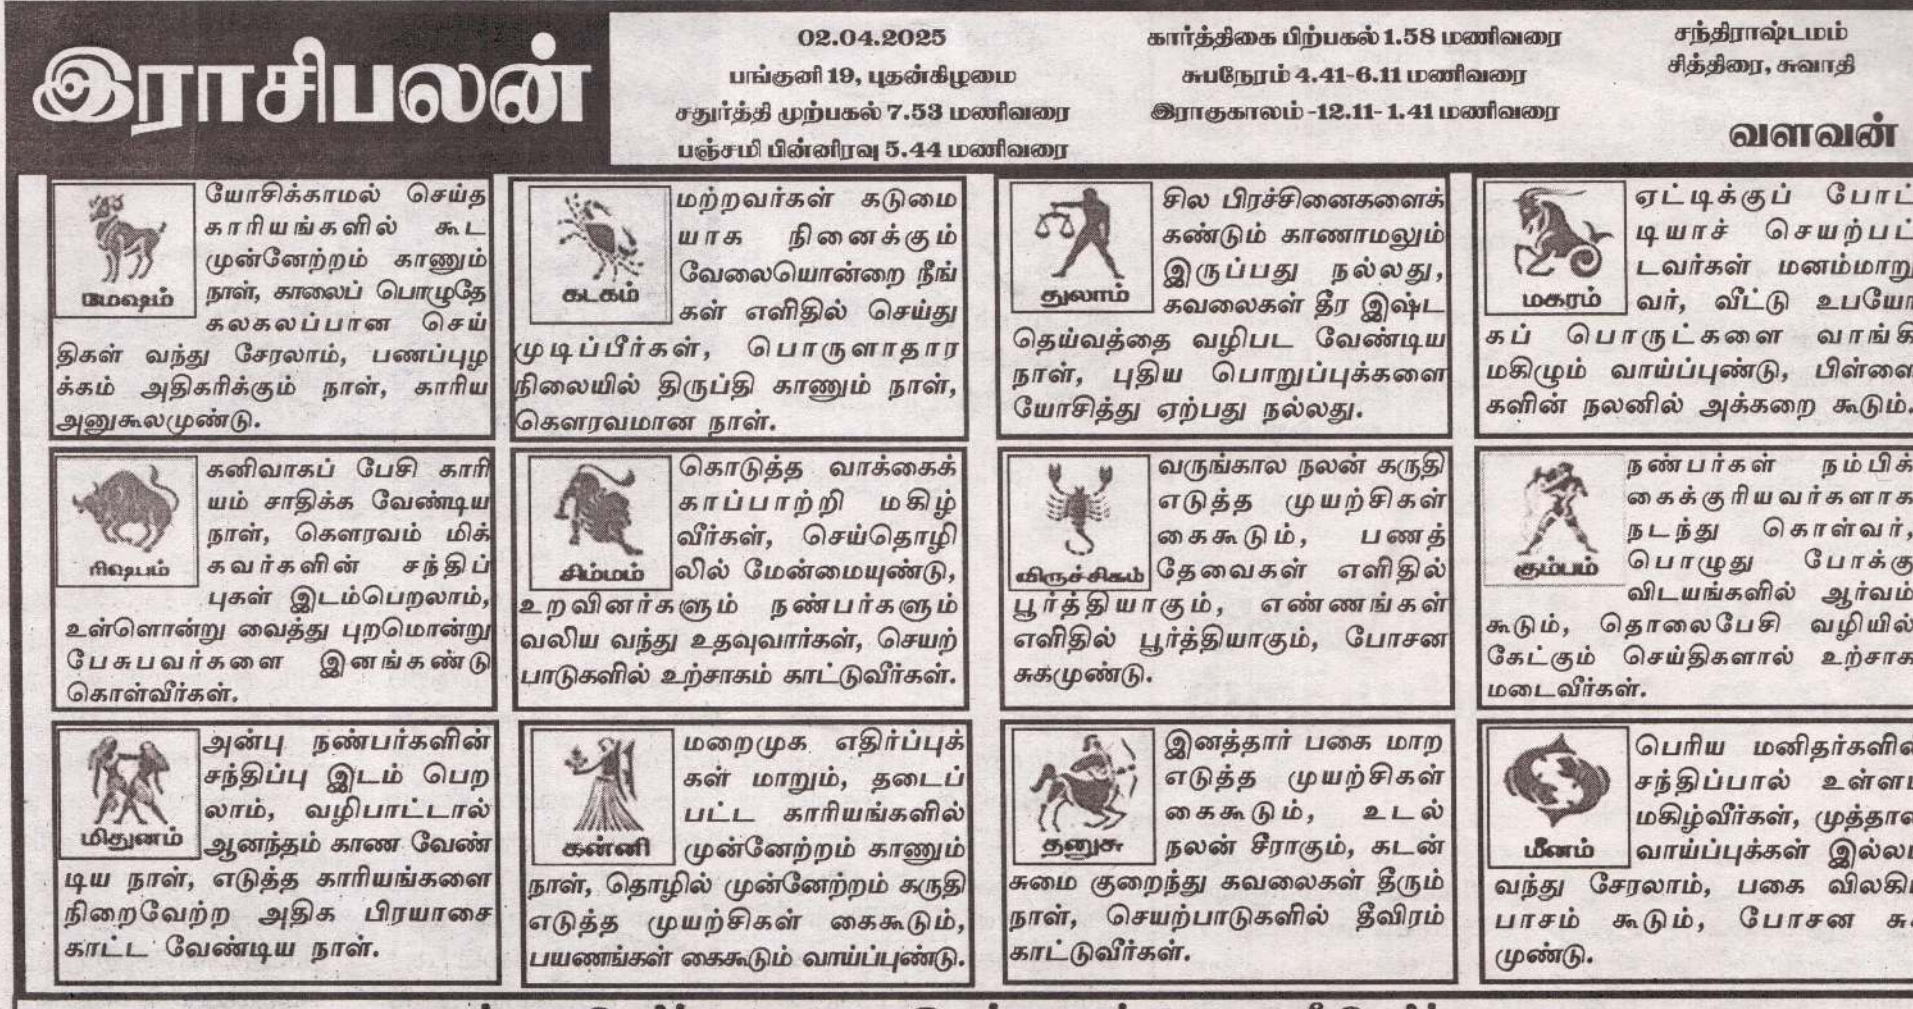 இராசிபலன்
02.04.2025
பங்குனி 19, புதன்கிழமை
சதுர்த்தி முற்பகல் 7.53 மணிவரை
பஞ்சமி பின்னிரவு 5.44 மணிவரை
கார்த்திகை பிற்பகல் 1.58 மணிவரை
சுபநேரம் 4.41-6.11 மணிவரை
இராகுகாலம் -12.11- 1.41 மணிவரை
சந்திராஷ்டமம்
சித்திரை, சுவாதி
வளவன்
மேஷம்
யோசிக்காமல் செய்த
காரியங்களில் கூட
முன்னேற்றம் காணும்
நாள், காலைப் பொழுதே
கலகலப்பான செய்
திகள் வந்து சேரலாம், பணப்புழ
க்கம் அதிகரிக்கும் நாள், காரிய
அனுகூலமுண்டு.
ரிஷபம்
கனிவாகப் பேசி காரி
யம் சாதிக்க வேண்டிய
நாள், கௌரவம் மிக்
கவர்களின் சந்திப்
புகள் இடம்பெறலாம்,
உள்ளொன்று வைத்து புறமொன்று
பேசுபவர்களை இனங்கண்டு
கொள்வீர்கள்.
மிதுனம்
அன்பு நண்பர்களின்
சந்திப்பு இடம் பெற
லாம், வழிபாட்டால்
ஆனந்தம் காண வேண்
டிய நாள், எடுத்த காரியங்களை
நிறைவேற்ற அதிக பிரயாசை
காட்ட வேண்டிய நாள்.
கடகம்
மற்றவர்கள் கடுமை
யாக நினைக்கும்
வேலையொன்றை நீங்
கள் எளிதில் செய்து
முடிப்பீர்கள், பொருளாதார
நிலையில் திருப்தி காணும் நாள்,
கௌரவமான நாள்.
சிம்மம்
கொடுத்த வாக்கைக்
காப்பாற்றி மகிழ்
வீர்கள், செய்தொழி
லில் மேன்மையுண்டு,
உறவினர்களும் நண்பர்களும்
வலிய வந்து உதவுவார்கள், செயற்
பாடுகளில் உற்சாகம் காட்டுவீர்கள்.
கன்னி
மறைமுக எதிர்ப்புக்
கள் மாறும், தடைப்
பட்ட காரியங்களில்
முன்னேற்றம் காணும்
நாள், தொழில் முன்னேற்றம் கருதி
எடுத்த முயற்சிகள் கைகூடும்,
பயணங்கள் கைகூடும் வாய்ப்புண்டு.
துலாம்
சில பிரச்சினைகளைக்
கண்டும் காணாமலும்
இருப்பது நல்லது,
கவலைகள் தீர இஷ்ட
தெய்வத்தை வழிபட வேண்டிய
நாள், புதிய பொறுப்புக்களை
யோசித்து ஏற்பது நல்லது.
விருச்சிகம்
வருங்கால நலன் கருதி
எடுத்த முயற்சிகள்
கைகூடும், பணத்
தேவைகள் எளிதில்
பூர்த்தியாகும், எண்ணங்கள்
எளிதில் பூர்த்தியாகும், போசன
சுகமுண்டு.
தனுசு
இனத்தார் பகை மாற
எடுத்த முயற்சிகள்
கைகூடும், உடல்
நலன் சீராகும், கடன்
சுமை குறைந்து கவலைகள் தீரும்
நாள், செயற்பாடுகளில் தீவிரம்
காட்டுவீர்கள்.
மகரம்
ஏட்டிக்குப் போட்
டியாச் செயற்பட்
டவர்கள் மனம்மாறு
வர், வீட்டு உபயோ
கப் பொருட்களை வாங்கி
மகிழும் வாய்ப்புண்டு, பிள்ளை
களின் நலனில் அக்கறை கூடும்.
கும்பம்
நண்பர்கள் நம்பிக்
கைக்குரியவர்களாக
நடந்து கொள்வர்,
பொழுது போக்கு
விடயங்களில் ஆர்வம்
கூடும், தொலைபேசி வழியில்
கேட்கும் செய்திகளால் உற்சாக
மடைவீர்கள்.
மீனம்
பெரிய மனிதர்களின்
சந்திப்பால் உள்ளம்
மகிழ்வீர்கள், முத்தான
வாய்ப்புக்கள் இல்லம்
வந்து சேரலாம், பகை விலகி
பாசம் கூடும், போசன சுக
முண்டு.